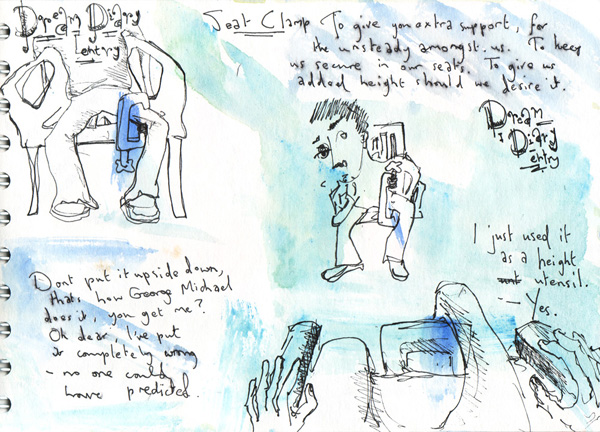 Dream Diary
entry
Seat Clamp To give you extra support, for
the unsteady amongst us. To keep
us secure in our seats. To give us
added height should we desire it.
Dream
Diary
entry
I just used it
as a height
utensil.
— Yes.
Dont put it upside down,
thats how George Michael
does it, you get me?
Oh dear, I've put
it completely wrong
- no one could
have predicted.